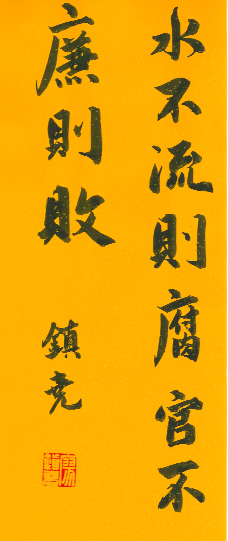 水不流則腐官不
廉則敗
鎮堯